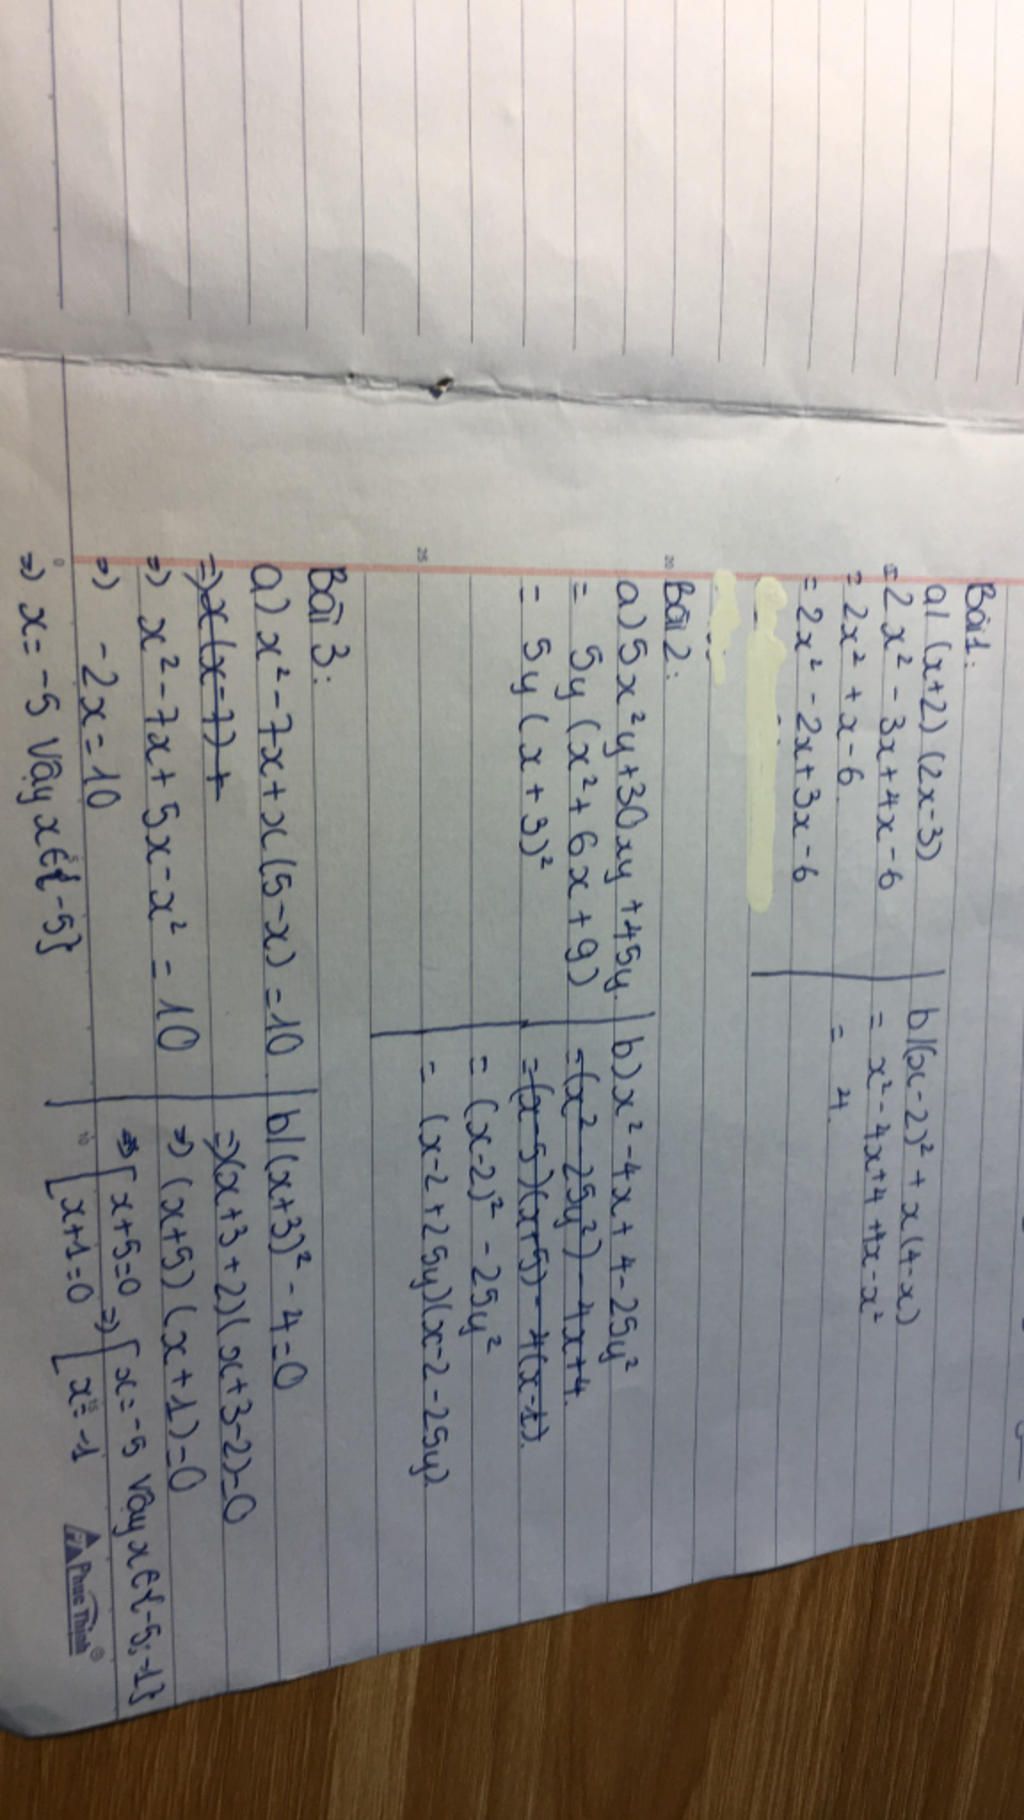 Bài 1:
a) (x+2) (2x-3)
= 2x² - 3x + 4x - 6
= 2x² + x - 6
= 2x² - 2x + 3x - 6
b) (x-2)² + x(4-x)
= x² - 4x + 4 + 4x - x²
= 4.
20
Bài 2:
a) 5x²y + 30xy + 45y.
= 5y (x² + 6x + 9)
= 5y (x + 3)²
b) x² - 4x + 4 - 25y²
= (x² - 25y²) - 4x + 4.
= (x-5)(x+5) - 4(x-1).
= (x-2)² - 25y²
= (x-2+25y)(x-2-25y)
25
Bài 3:
a) x² - 7x + x(5-x) = 10
=> x(x-7) +
=> x² - 7x + 5x - x² = 10
=> -2x = 10
=> x = -5 Vậy x ∈ {-5}
b) (x+3)² - 4 = 0
=> (x+3+2)(x+3-2) = 0
=> (x+5)(x+1) = 0
=> [ x+5=0 => [ x=-5 Vậy x ∈ {-5; -1}
[ x+1=0 [ x=-1
0 5 10 15
Phuc Thinh®